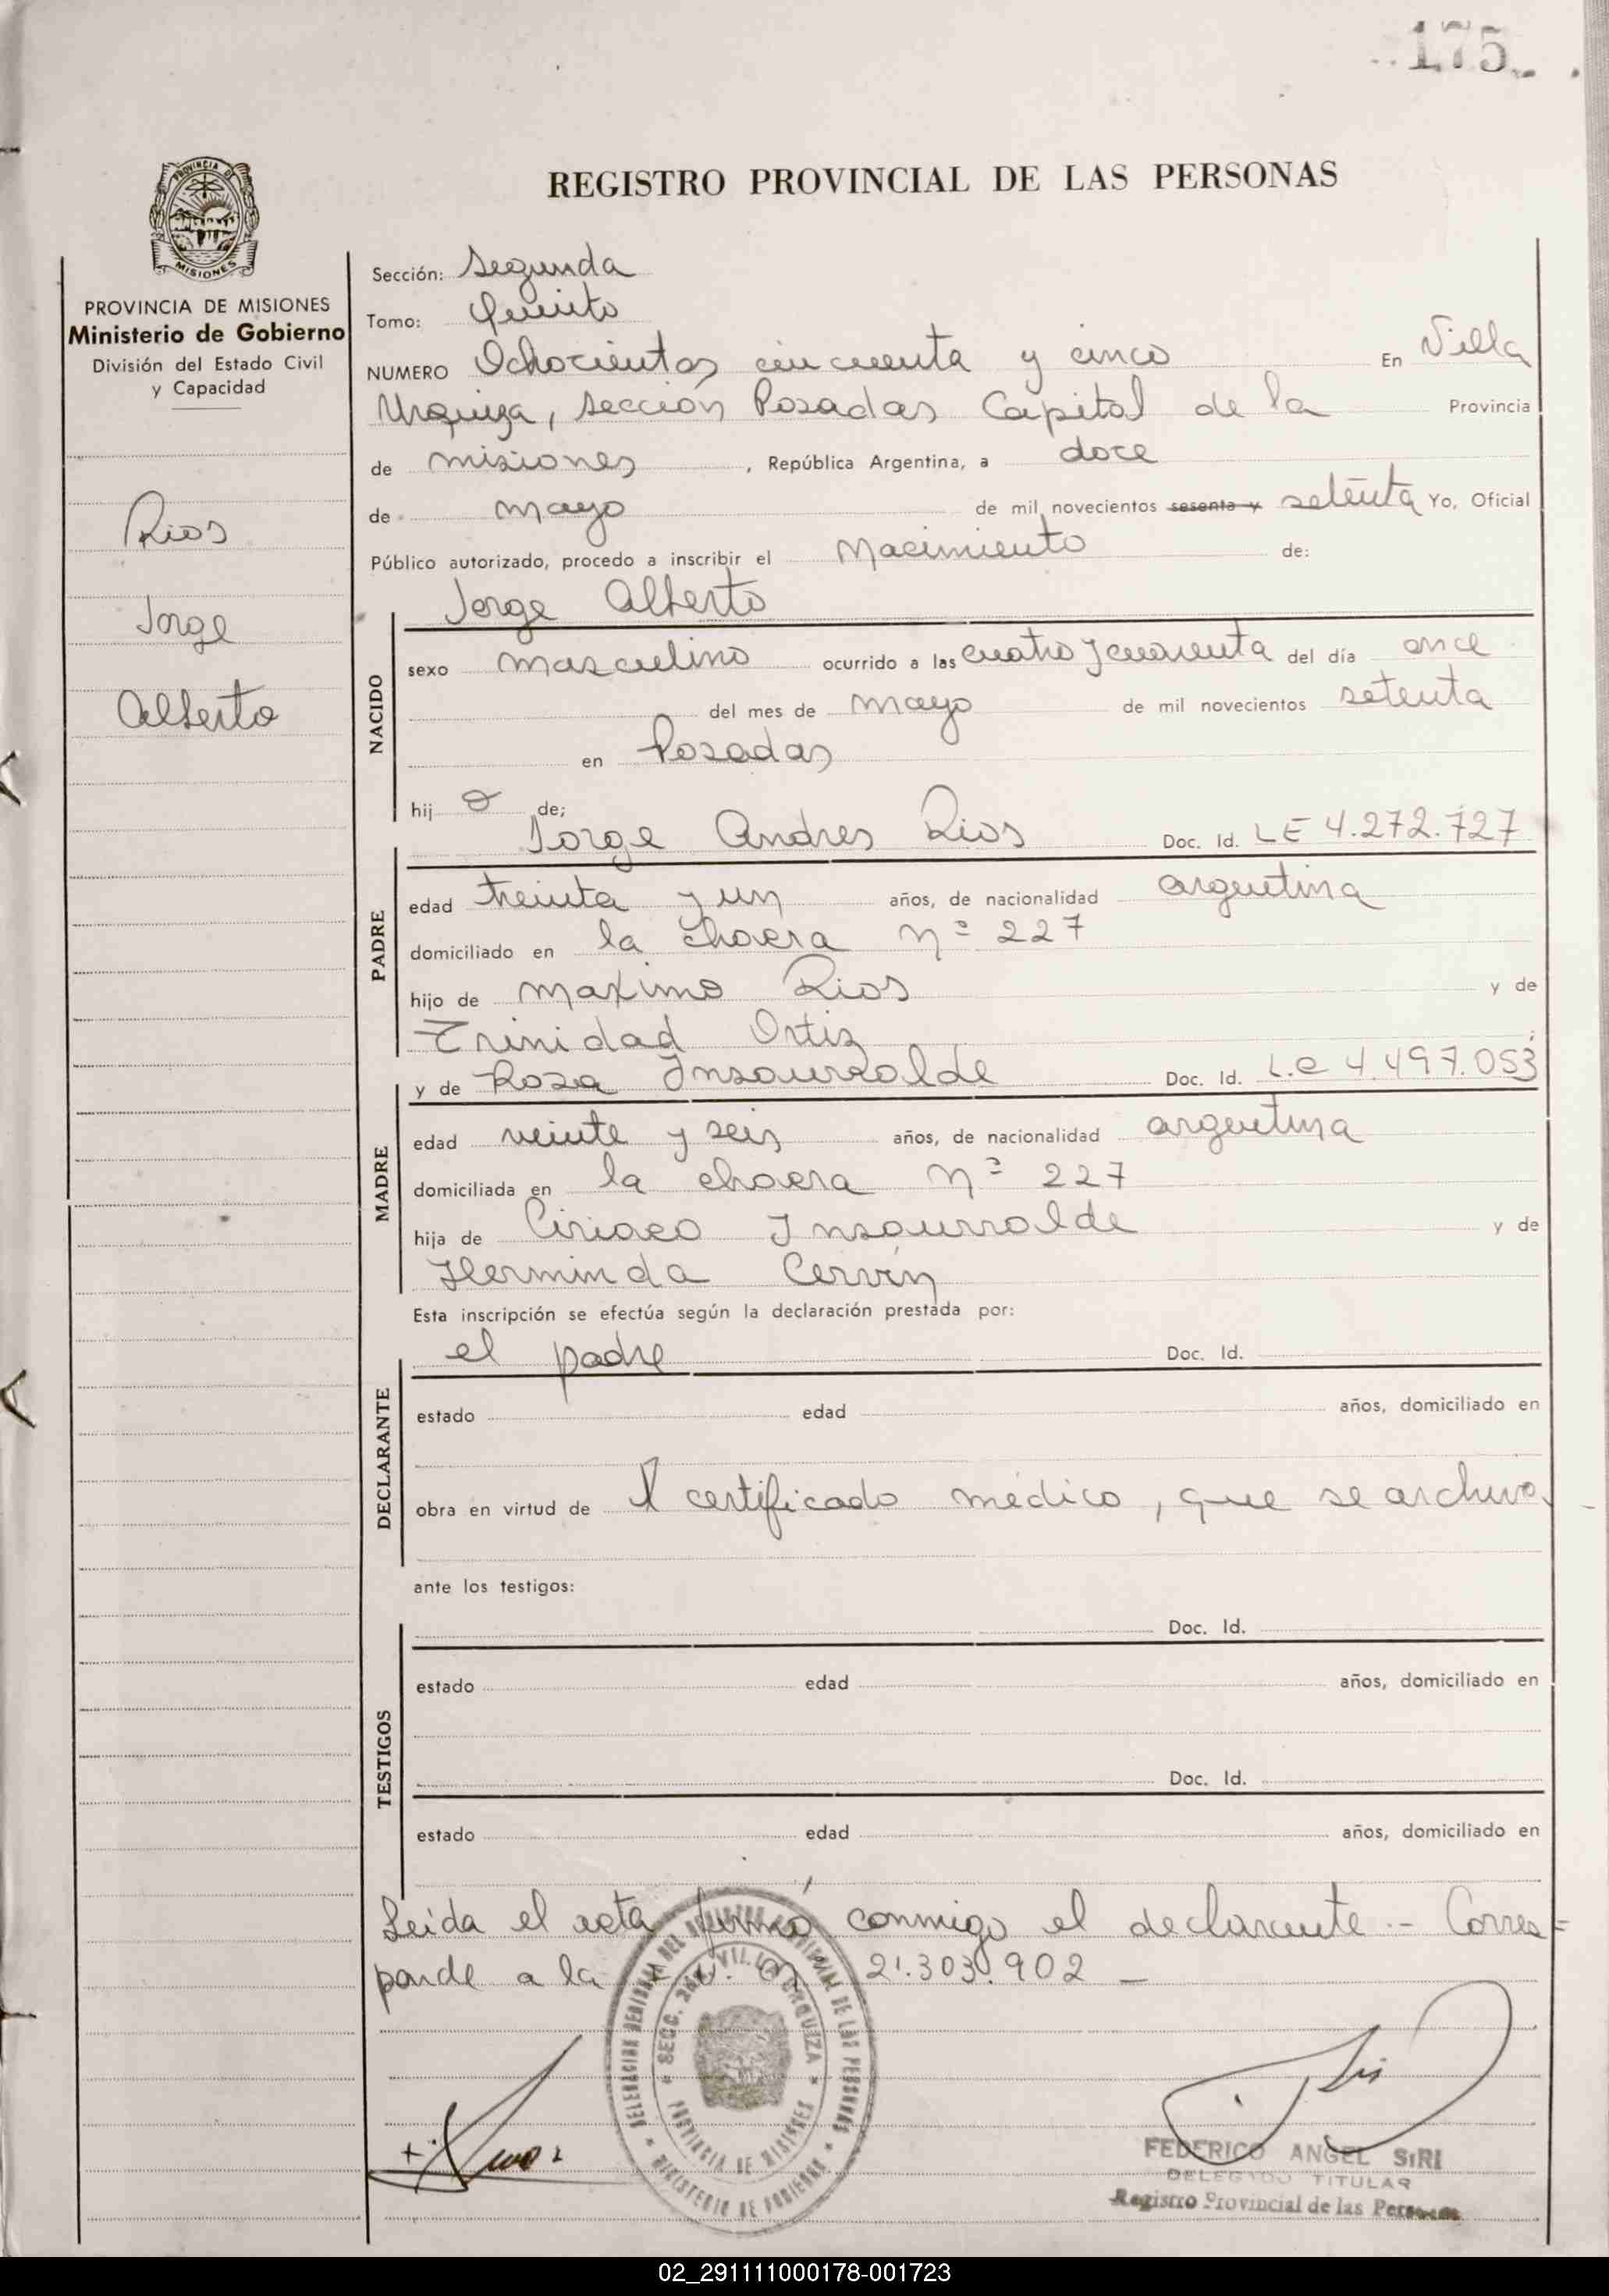 175
REGISTRO PROVINCIAL DE LAS PERSONAS
PROVINCIA DE MISIONES
MISIONES
PROVINCIA DE MISIONES
Ministerio de Gobierno
División del Estado Civil
y Capacidad
Rios
Jorge
Alberto
Sección: Segunda
Tomo: Quinto
NUMERO Ochocientos cincuenta y cinco En Villa
Urquiza, sección Posadas Capital de la Provincia
de misiones, República Argentina, a doce
de mayo de mil novecientos sesenta y setenta Yo, Oficial
Público autorizado, procedo a inscribir el Nacimiento de:
Jorge Alberto
NACIDO
sexo masculino ocurrido a las cuatro y cuarenta del día once
del mes de mayo de mil novecientos setenta
en Posadas
hij o de;
Jorge Andres Rios Doc. Id. LE 4.272.727
PADRE
edad treinta y un años, de nacionalidad argentina
domiciliado en la chacra nº 227
hijo de maximo Rios y de
Trinidad Ortiz
y de Rosa Insaurralde Doc. Id. L.e 4.497.053
MADRE
edad veinte y seis años, de nacionalidad argentina
domiciliada en la chacra nº 227
hija de Ciriaco Insaurralde y de
Herminda Cervin
Esta inscripción se efectúa según la declaración prestada por:
el padre Doc. Id.
DECLARANTE
estado edad años, domiciliado en
obra en virtud de l certificado médico, que se archiva.
ante los testigos:
Doc. Id.
TESTIGOS
estado edad años, domiciliado en
Doc. Id.
estado edad años, domiciliado en
Leída el acta firmó conmigo el declarante.- Corres=
ponde a la 21.303.902 —
DELEGACION REGIONAL DEL REGISTRO PROVINCIAL DE LAS PERSONAS
MINISTERIO DE GOBIERNO
SECC. 2da. VILLA URQUIZA
PROVINCIA DE MISIONES
FEDERICO ANGEL SIRI
DELEGADO TITULAR
Registro Provincial de las Personas
02_291111000178-001723